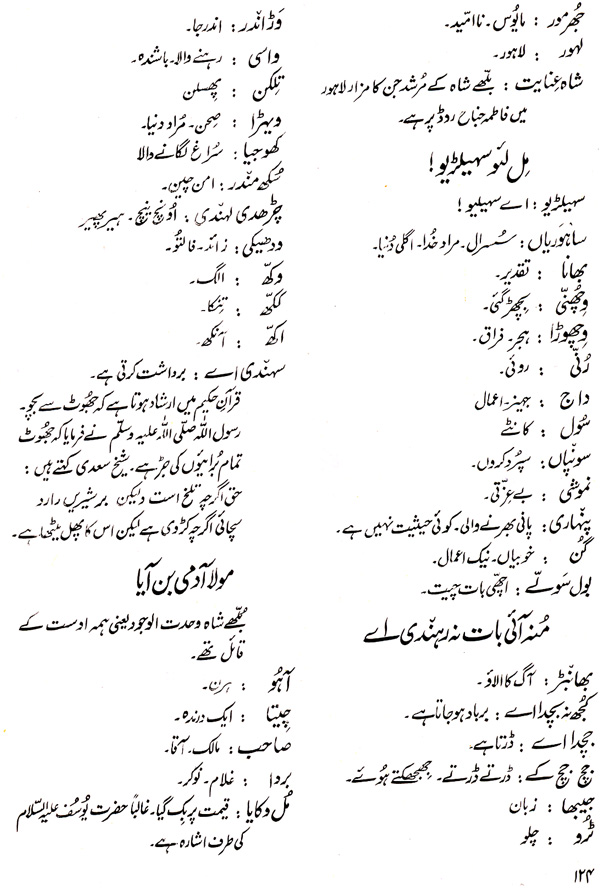 جُھرمور : مایُوس۔ نااُمّید۔
لہور : لاہور۔
شاہ عِنایت : بلّھے شاہ کے مُرشد جن کا مزار لاہور
میں فاطمہ جناح روڈ پر ہے۔
مِل لئو سہیلڑیو!
سہیلڑیو : اے سہیلیو!
ساہوریاں : سُسرال۔ مراد خُدا۔ اگلی دُنیا۔
بھانا : تقدیر۔
وِچُھنّی : بِچھڑ گئی۔
وِچھوڑا : ہجر۔ فراق۔
رُنّی : روئی۔
داج : جہیز۔ اعمال
سُول : کانٹے
سونپاں : سپُرد کروں۔
نموشی : بے عزّتی۔
پنہاری : پانی بھرنے والی۔ کوئی حیثیت نہیں ہے۔
گُن : خوبیاں۔ نیک اعمال۔
بول سَوتّے : اچھی بات چیت۔
مُنہ آئی بات نہ رہندی اے
بھانبڑ : آگ کا الاؤ۔
کُجھ نہ بچدا اے : برباد ہو جاتا ہے۔
جچدا اے : ڈرتا ہے۔
جچ جچ کے : ڈرتے ڈرتے۔ جِھجھکتے ہُوئے۔
جیبھا : زبان
ٹُرو : چلو
۱۲۴
وَڑ اندر : اندر جا۔
واسی : رہنے والا۔ باشندہ۔
تِلکن : پِھسلن
ویہڑا : صحن۔ مُراد دنیا۔
کھوجیا : سُراغ لگانے والا
سُکھ مندر : امن چین۔
چڑھدی لہندی : اُونچ نیچ۔ ہیر پھیر
ودھیکی : زائد۔ فالتُو۔
وکھّ : الگ۔
ککھّ : تِنکا۔
اکھّ : آنکھ۔
سہندی اے : برداشت کرتی ہے۔
قرآنِ حکیم میں ارشاد ہوتا ہے کہ جُھوٹ سے بچو۔
رسول اللہ صلّی اللہ علیہ وسلّم نے فرمایا کہ جُھوٹ
تمام بُرائیوں کی جڑ ہے۔ شیخ سعدی کہتے ہیں :
حق اگرچہ تلخ است ولیکن بر شیریں دارد
سچائی اگرچہ کڑوی ہے لیکن اس کا پھل میٹھا ہے۔
مولا آدمی بن آیا
بُلّھے شاہ وحدت الوجود یعنی ہمہ اوست کے
قائل تھے۔
آہُو : ہرن۔
چیتا : ایک درندہ۔
صاحب : مالک۔ آقا۔
بردا : غلام۔ نوکر۔
مُل وکایا : قیمت پر بِک گیا۔ غالباً حضرت یُوسُف علیہ السّلام
کی طرف اشارہ ہے۔